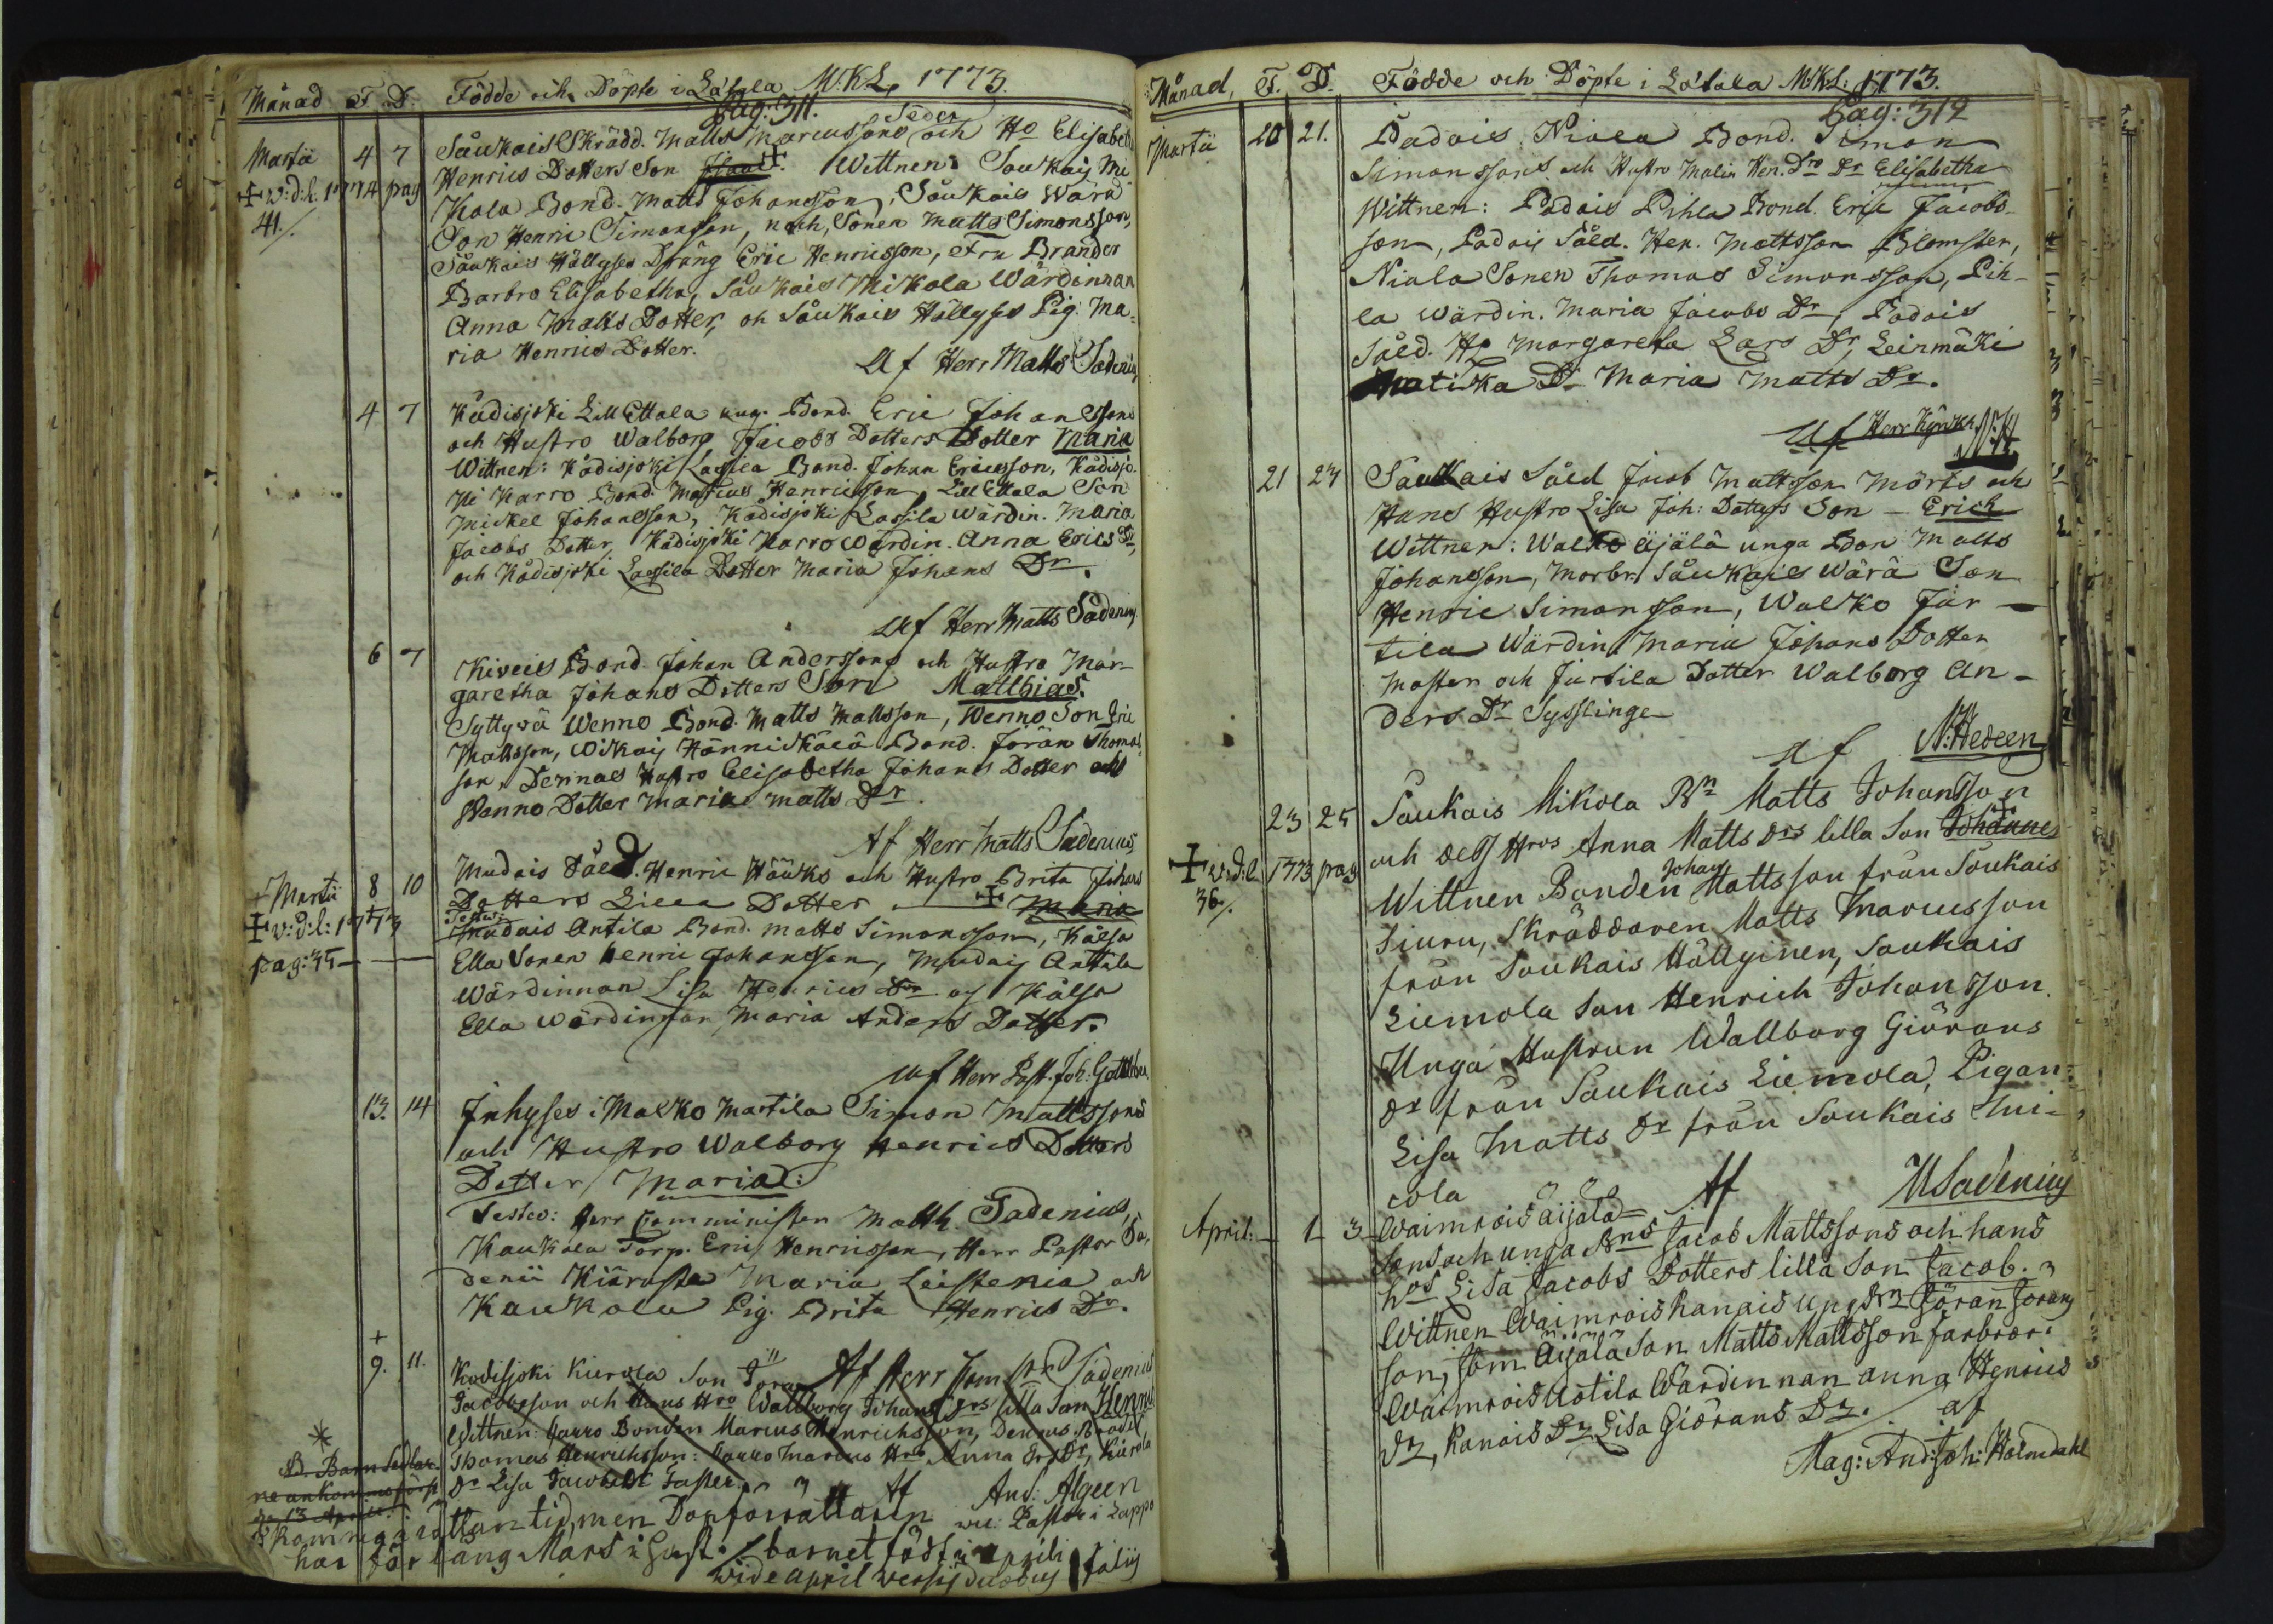 Månad F. D. Födde och Döpte i Låtala M.K.L, 1773.
Pag: 311.
Martii 4 7 Såukais Skrädd. Matts Marcussons och Ho Elisabeth
Henrics Dotters Son Wittnen: Saukais Mi-
‡ v:d:l: 1774 pag
41/.
Kola Bond. Matts Johansson, Såukais Wärä
Son Henric Simonsson, och, Sonen Matts Simonsson,
Såukais Hällyses Dräng Eric Henricsson, Fru Brander
Barbro Elisabetha, Såukais Mikola Wärdinnan
Anna Matts Dotter, och Såukais Hällyses Pig. Ma-
ria Henrics Dotter.
Af Herr Matts Sadenius
4 7 Kådisjoki Lill Ettala ung. Bond. Eric Johanssons
och Hustro Walborg Jacobs Dotters Dotter Maria
Wittnen: Kådisjoki Lassila Bond. Johan Ericsson, Kådisjo-
ki Karro Bond. Marcus Henricsson, Lill Ettala Son
Mickel Johansson, Kådisjoki Lassila Wärdin. Maria
Jacobs Dotter, Kådisjoki Karro Wärdin. Anna Erics Dr,
och Kådisjoki Lassila Dotter Maria Johans Dr.
Af Herr Matts Sadenius
6 7 Kiveis Bond. Johan Anderssons och Hustro Mar-
garetha Johans Dotters Son Matthias.
Syttyvä Wenno Bond. Matts Mattsson, Wenno Son Eric
Mattsson, Wiskaij Hännickälä Bond. Jöran Thomas-
son, Dennes Hustro Elisabetha Johans Dotter och
Wenno Dotter Maria Matts Dr.
Af Herr Matts Sadenius
Martii 8 10 Mudais Såld. Henric Håuks och Hustro Brita Johans
Dotters Lilla Dotter ‡ Maria
‡ v:d:l: 1773
pag: 35
Testes: Mudais Antila Bond. Matts Simonsson, Kålsa
Ella Sonen Henric Johansson, Mudaij Anttila
Wärdinnan Lisa Henrics Dr och Kålsa
Ella Wärdinnan Maria Anders Dotter.
Af Herr Past. Joh: Gottleben
13. 14 Inhyses i Walko Martila Simon Mattssons
och Hustro Walborg Henrics Dotters
Dotter Maria:
Testes: Herr Comministen Matth. Sadenius,
Kaukola Torp. Eric Henricsson, Herr Pastor Sa-
denii Käraste Maria Leistenia och
Kaukola Pig. Brita Henrics Dr.
Af Herr Com:str Sadenius
9. 11. Kodisjoki Kierola Son Göran
Jacobsson och Hans Hro Wallborg Johans Drs lilla Son Henric
Wittnen: Karro Bonden Marcus Henrichsson, Dennes Broder
Thomas Henrichsson: Karro Marcus Hro Anna Drs Dr, Kierola
Dr Lisa Jacobs Dr Faster.
Af And: Algeen
vic: Pastor i Lappo
Barn Sedlar-
ne ankommo först
d. 13 Aprilis.
kom nog i rättan tid, men Dopförrättaren
har för lång Mars i Gust: barnet född i aprili
wide april versus duobus

Månad, F. D. Födde och Döpte i Låtala M.K.L. 1773.
Pag: 312
Martii 20 21. Padois Niala Bond. Simon
Simonssons och Hustro Malin Hen. Drs Dr Elisabetha
Wittnen: Padois Pihla Bond. Eric Jacobs-
son, Padois Såld. Hen. Mattsson Blomster,
Niala Sonen Thomas Simonsson, Pih-
la wärdin. Maria Jacobs Dr, Padois
Såld. Ho Margareta Lars Dr, Leinmäki
Matiska Dr Maria Matts Dr.
Af Herr Kijnck
21 24 Saukais Såld Jacob Mattsson Mörts och
Hans Hustro Lisa Joh: Dotters Son – Erich
Wittner: Walko äijälä unga Bon Matts
Johansson, Morbr. Såukais Wärä Son
Henric Simonsson, Walko Jur –
tila Wärdin. Maria Johans Dotter
Moster och Jurtila Dotter Walborg An-
ders Dr Sysslinge
Af N: Hedeen
23 25 Saukais Mikola Bn Matts Johansson
och dess Hros Anna Matts Drs lilla Son Johannes ‡
‡ v:d:l 1773 pag
36/.
Wittnen Bonden Johan Mattsson från Saukais
Siuru, Skräddaren Matts Marcusson
från Saukais Hällyinen, Saukais
Liemola Son Henrich Johansson.
Unga Hustrun Wallborg Giörans
Dr från Saukais Liemola, Pigan:
Lisa Matts Dr från Saukais Mi-
cola Af MSadenius
April: 1 3 Waimrois äijälä
Son och unga Bns Jacob Mattssons och hans
hos Lisa Jacobs Dotters lilla Son Jacob.
Wittnen Waimrois Kanais ung Bn Jöran Jörans
son, som Äijälä Son Matts Mattsson farbror.
Waimrois Uotila Wärdinnan anna Henrics
Dr, Kanais Dr Lisa Giörans Dr. af
Mag: And: Joh: Holmdahl